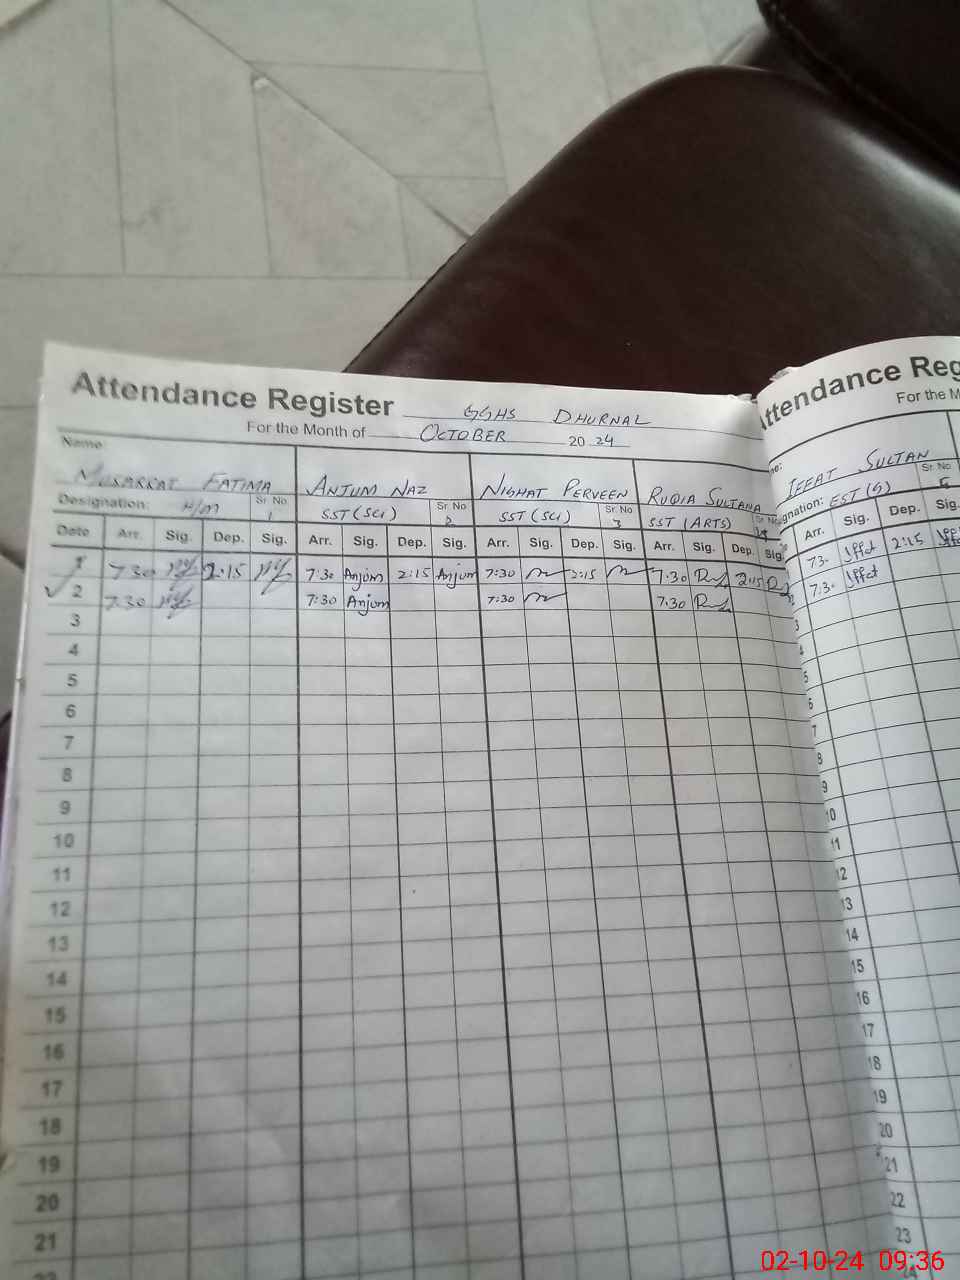 Attendance Register GGHS DHURNAL
For the Month of OCTOBER 2024
Name
MUSARRAT FATIMA ANJUM NAZ NIGHAT PERVEEN RUQIA SULTANA
Designation: H/M Sr No 1 SST (SCI) Sr No 2 SST (SCI) Sr No 3 SST (ARTS) Sr No
Date Arr. Sig. Dep. Sig. Arr. Sig. Dep. Sig. Arr. Sig. Dep. Sig. Arr. Sig. Dep. Sig.
1 7:30 2:15 7:30 Anjum 2:15 Anjum 7:30 2:15 7:30 2:15
2 7:30 7:30 Anjum 7:30 7:30
3
4
5
6
7
8
9
10
11
12
13
14
15
16
17
18
19
20
21
22
Attendance Reg
For the M
me:
IFFAT SULTAN
Sr No
signation: EST (G) 5
Arr. Sig. Dep. Sig.
7:30 Iffat 2:15 Iffat
7:30 Iffat
3
4
5
6
7
8
9
10
11
12
13
14
15
16
17
18
19
20
21
22
23
24
02-10-24 09:36